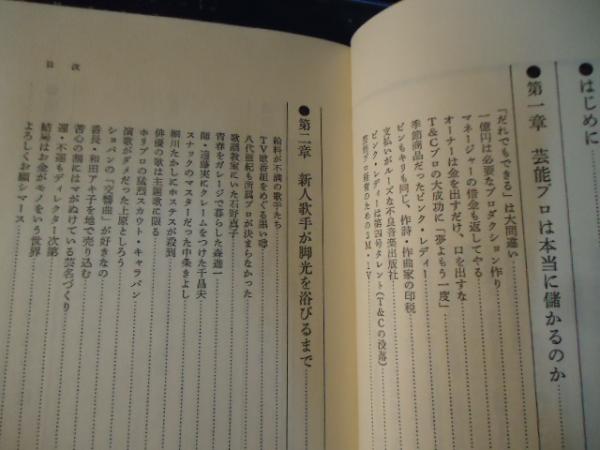 ●はじめに
●第一章　芸能プロは本当に儲かるのか
「だれでもできる」は大間違い
一億円は必要なプロダクション作り
マネージャーの借金も返してやる
オーナーは金を出すだけ、口を出すな
T&Cプロの大成功に「夢よもう一度」
季節商品だったピンク・レディー
ピンもキリも同じ、作詩・作曲家の印税
支払いがルーズな不良音楽出版社
ピンク・レディーは第四号タレント（T&Cの没落）
芸能プロ経営のための3M・1V
目次
●第二章　新人歌手が脚光を浴びるまで
給料が不満の歌手たち
TV歌番組をめぐる黒い噂
八代亜紀も所属プロが決まらなかった
歌謡教室にいた石野真子
青春をガレージで暮らした森進一
師・遠藤実にクレームをつけた千昌夫
スナックのマスターだった中条きよし
細川たかしにホステスが殺到
俳優の歌は主題歌に限る
ホリプロの猛烈スカウト・キャラバン
演歌がダメだった上原としろう
ショパンの「交響曲」が好きなの
善長・和田アキ子を地で売り込む
苦心の割にはマがぬけている芸名づくり
運・不運もディレクター次第
結局はお金がモノをいう世界
よろしくお願シマース